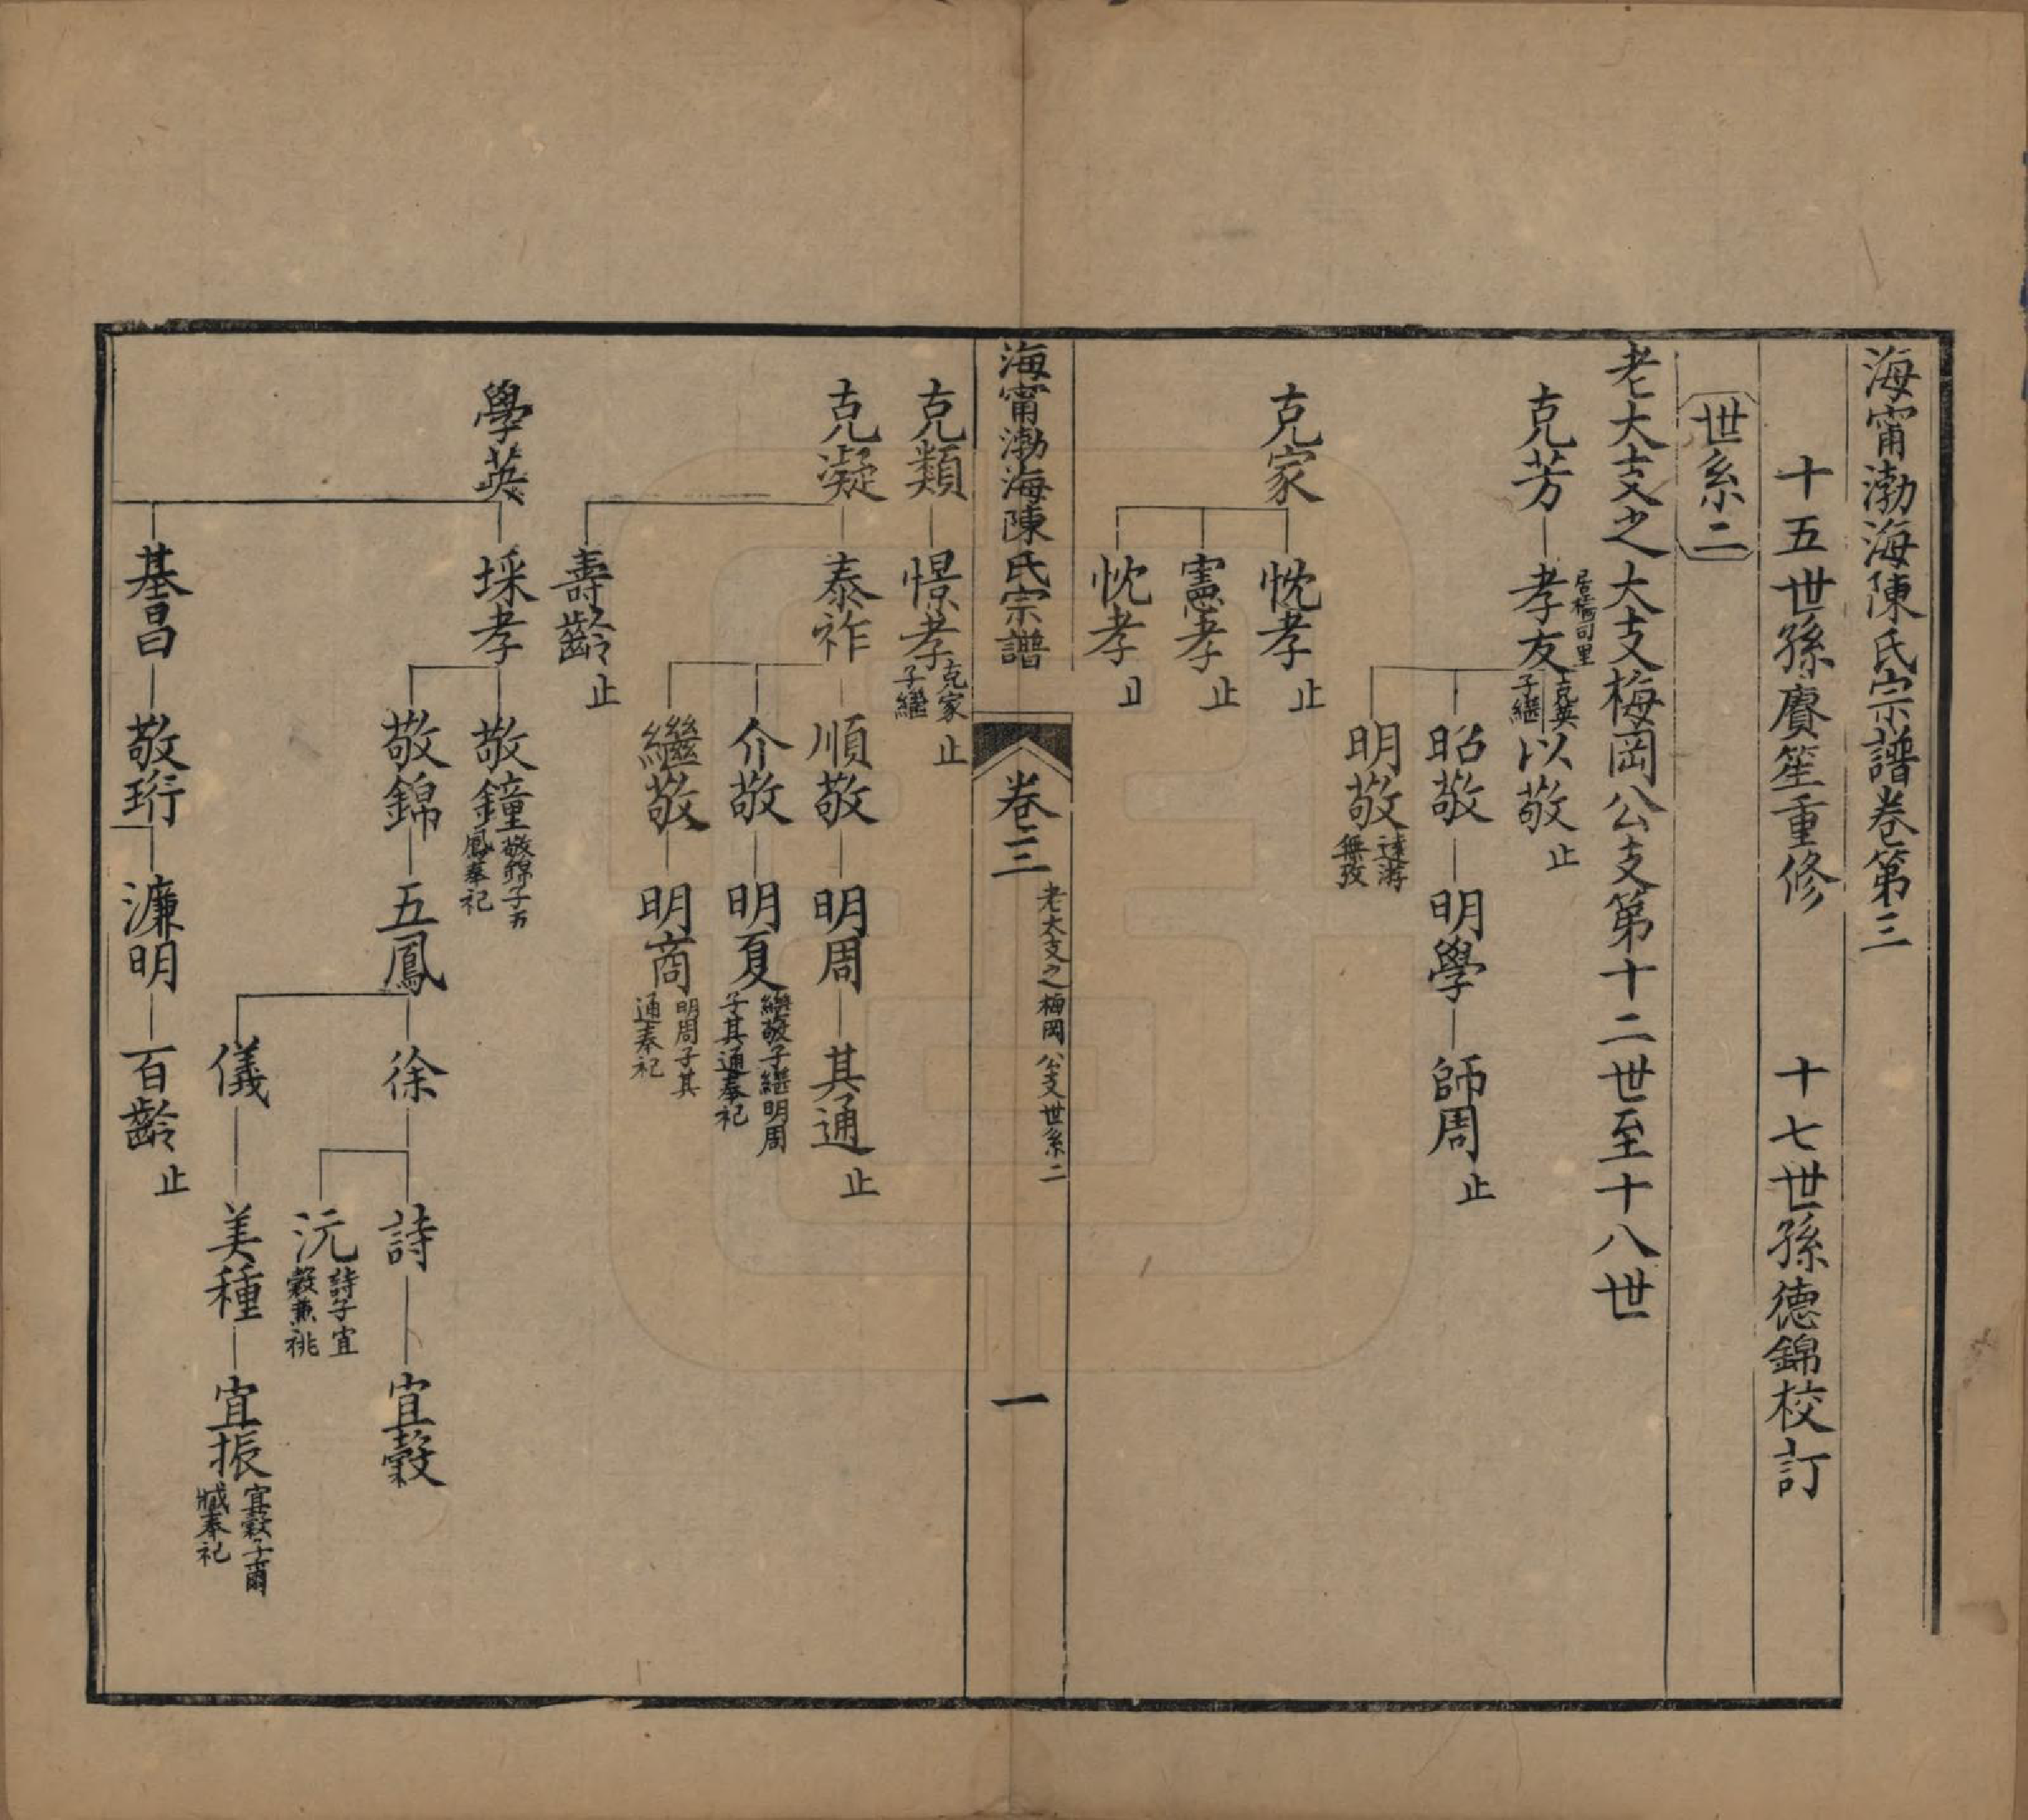 海甯渤海陳氏宗譜卷第三
十五世孫賡笙重修　十七世孫德錦校訂
世系二
老大支之大支梅岡公支第十二世至十八世
克芳
孝友
克英
子繼
以敬止
昭敬
明學
師周止
明敬
遠游
無攷
克家
忱孝止
憲孝止
忱孝止
海甯渤海陳氏宗譜
卷三
老大支之梅岡公支世系二
一
克類
憬孝
克家
子繼
止
克凝
泰祚
順敬
明周
其通止
介敬
明夏
繼敬子繼明周
子其通奉祀
繼敬
明商
明周子其
通奉祀
壽齡止
學英
埰孝
敬鐘
敬錦子五
鳳奉祀
敬錦
五鳳
徐
詩
宜穀
沅
詩子宜
穀兼祧
儀
美種
宜振
宜穀子爾
臧奉祀
基昌
敬珩
濂明
百齡止